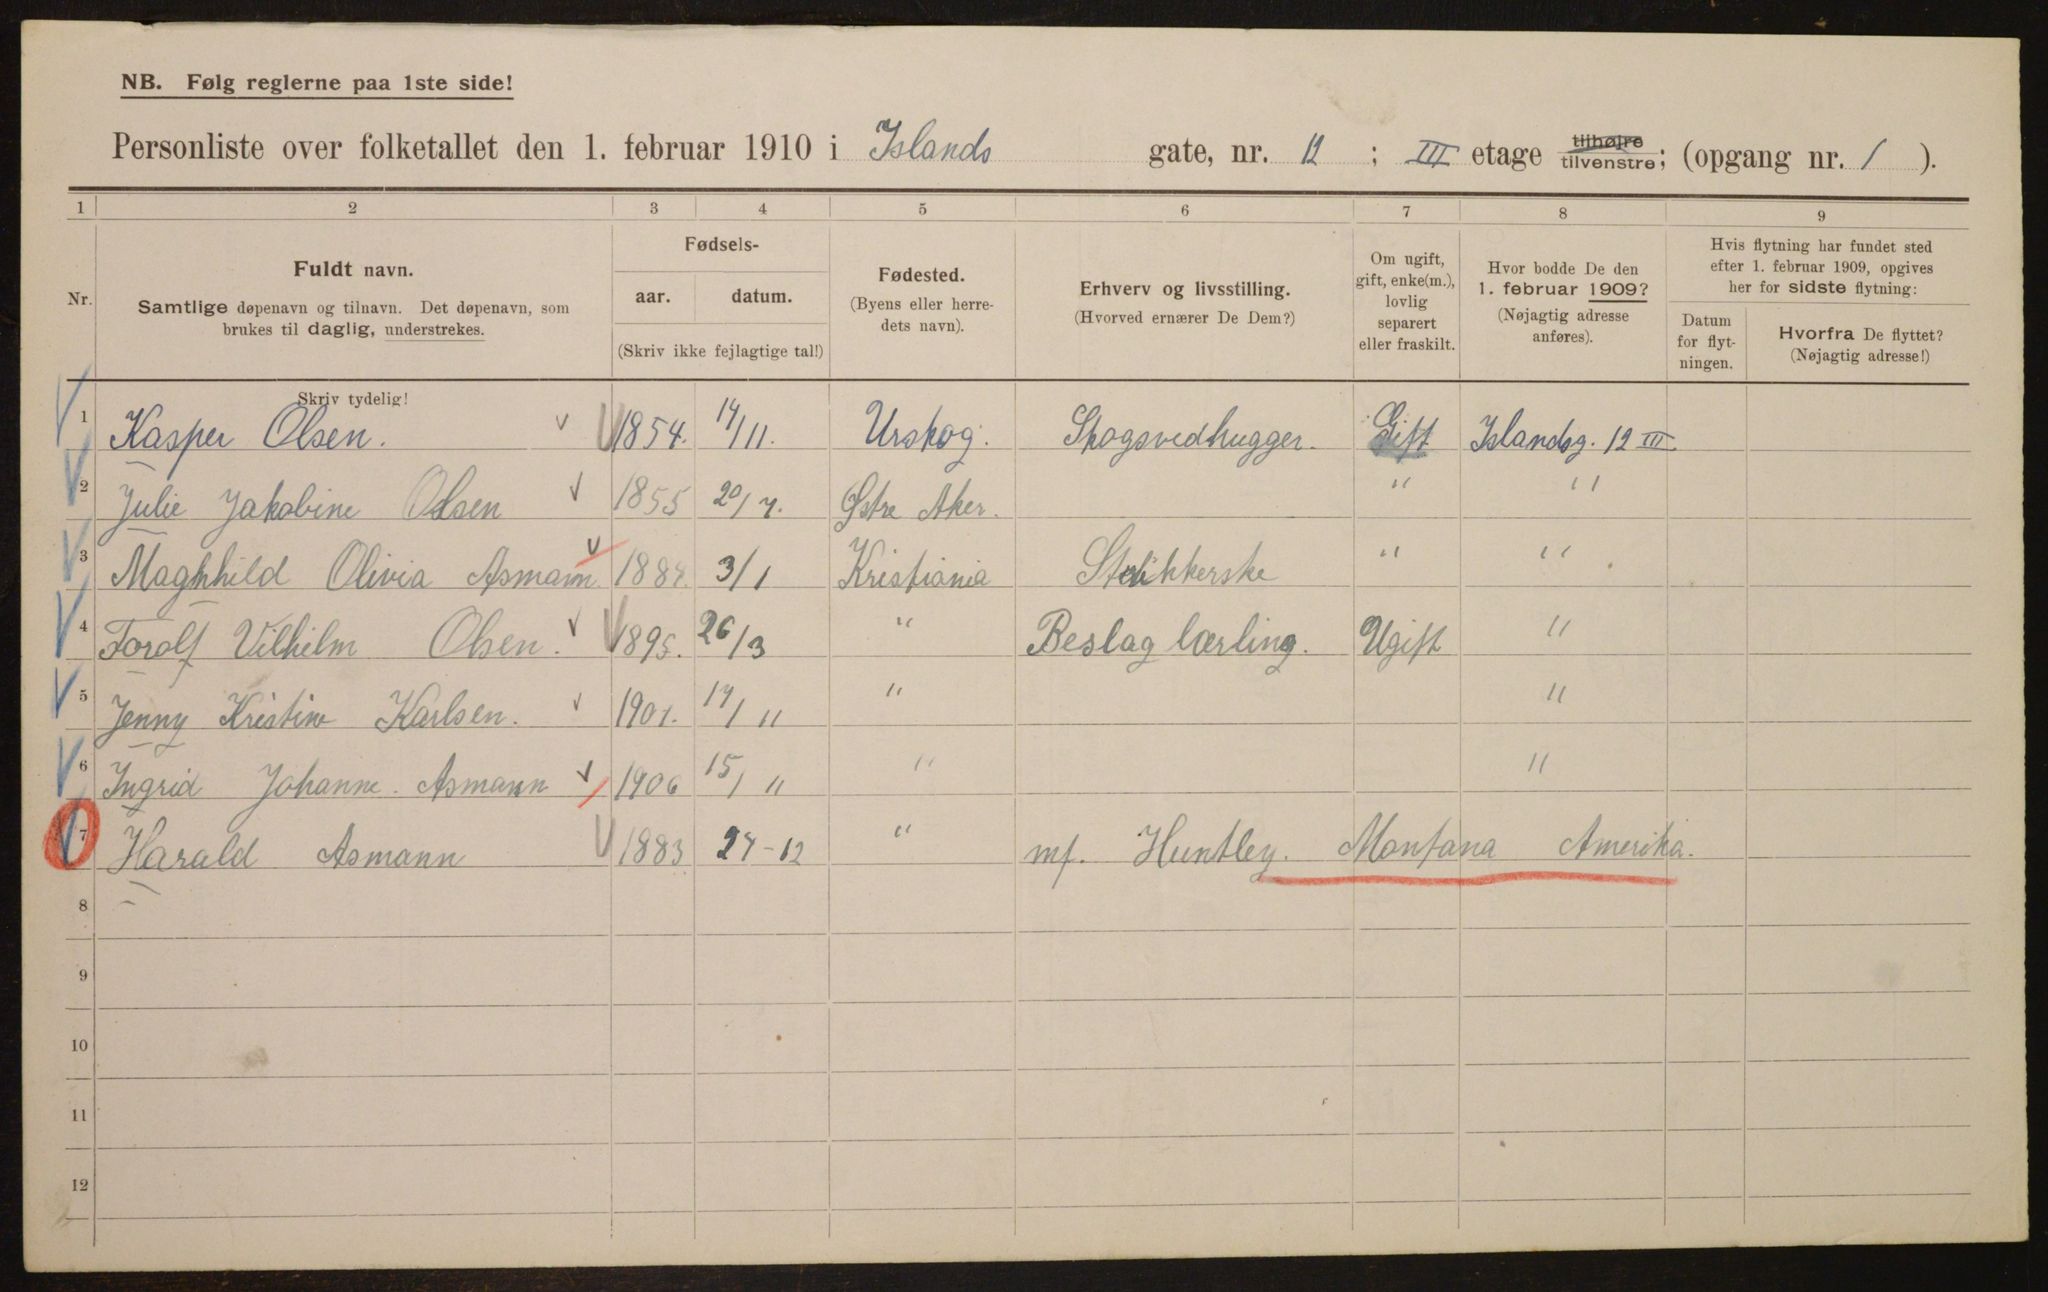 NB. Følg reglerne paa 1ste side!
Personliste over folketallet den 1. februar 1910 i Islands gate, nr. 12 ; III etage tilhøjre tilvenstre; (opgang nr. 1 ).
1 2 3 4 5 6 7 8 9
Nr.
Fuldt navn.
Samtlige døpenavn og tilnavn. Det døpenavn, som
brukes til daglig, understrekes.
Skriv tydelig!
Fødsels-
aar. datum.
(Skriv ikke fejlagtige tal!)
Fødested.
(Byens eller herre-
dets navn).
Erhverv og livsstilling.
(Hvorved ernærer De Dem?)
Om ugift,
gift, enke(m.),
lovlig
separert
eller fraskilt.
Hvor bodde De den
1. februar 1909?
(Nøjagtig adresse
anføres).
Hvis flytning har fundet sted
efter 1. februar 1909, opgives
her for sidste flytning:
Datum
for flyt-
ningen.
Hvorfra De flyttet?
(Nøjagtig adresse!)
1 Kasper Olsen. 1854. 14/11. Urskog. Skogsvedhugger. Gift Islandsg. 12 III
2 Julie Jakobine Olsen 1855 20/7. Østre Aker. " "
3 Maghhild Olivia Asmann. 3/1 Kristiania " "
4 Torolf Vilhelm Olsen. 1895. 26/3 " Beslag lærling. Ugift "
5 Jenny Kristine Karlsen. 1901. 14/11 " "
6 Ingrid Johanne. Asmann 1906 15/11 " "
7 Harald Asmann 1883 27-12 " Huntley. Montana Amerika.
8
9
10
11
12